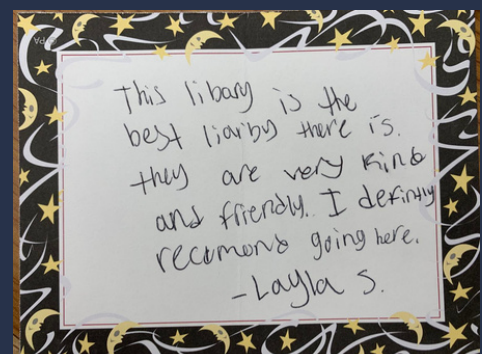 This libary is the
best liarby there is.
they are very kind
and friendly. I defintly
recomond going here.
-Layla S.